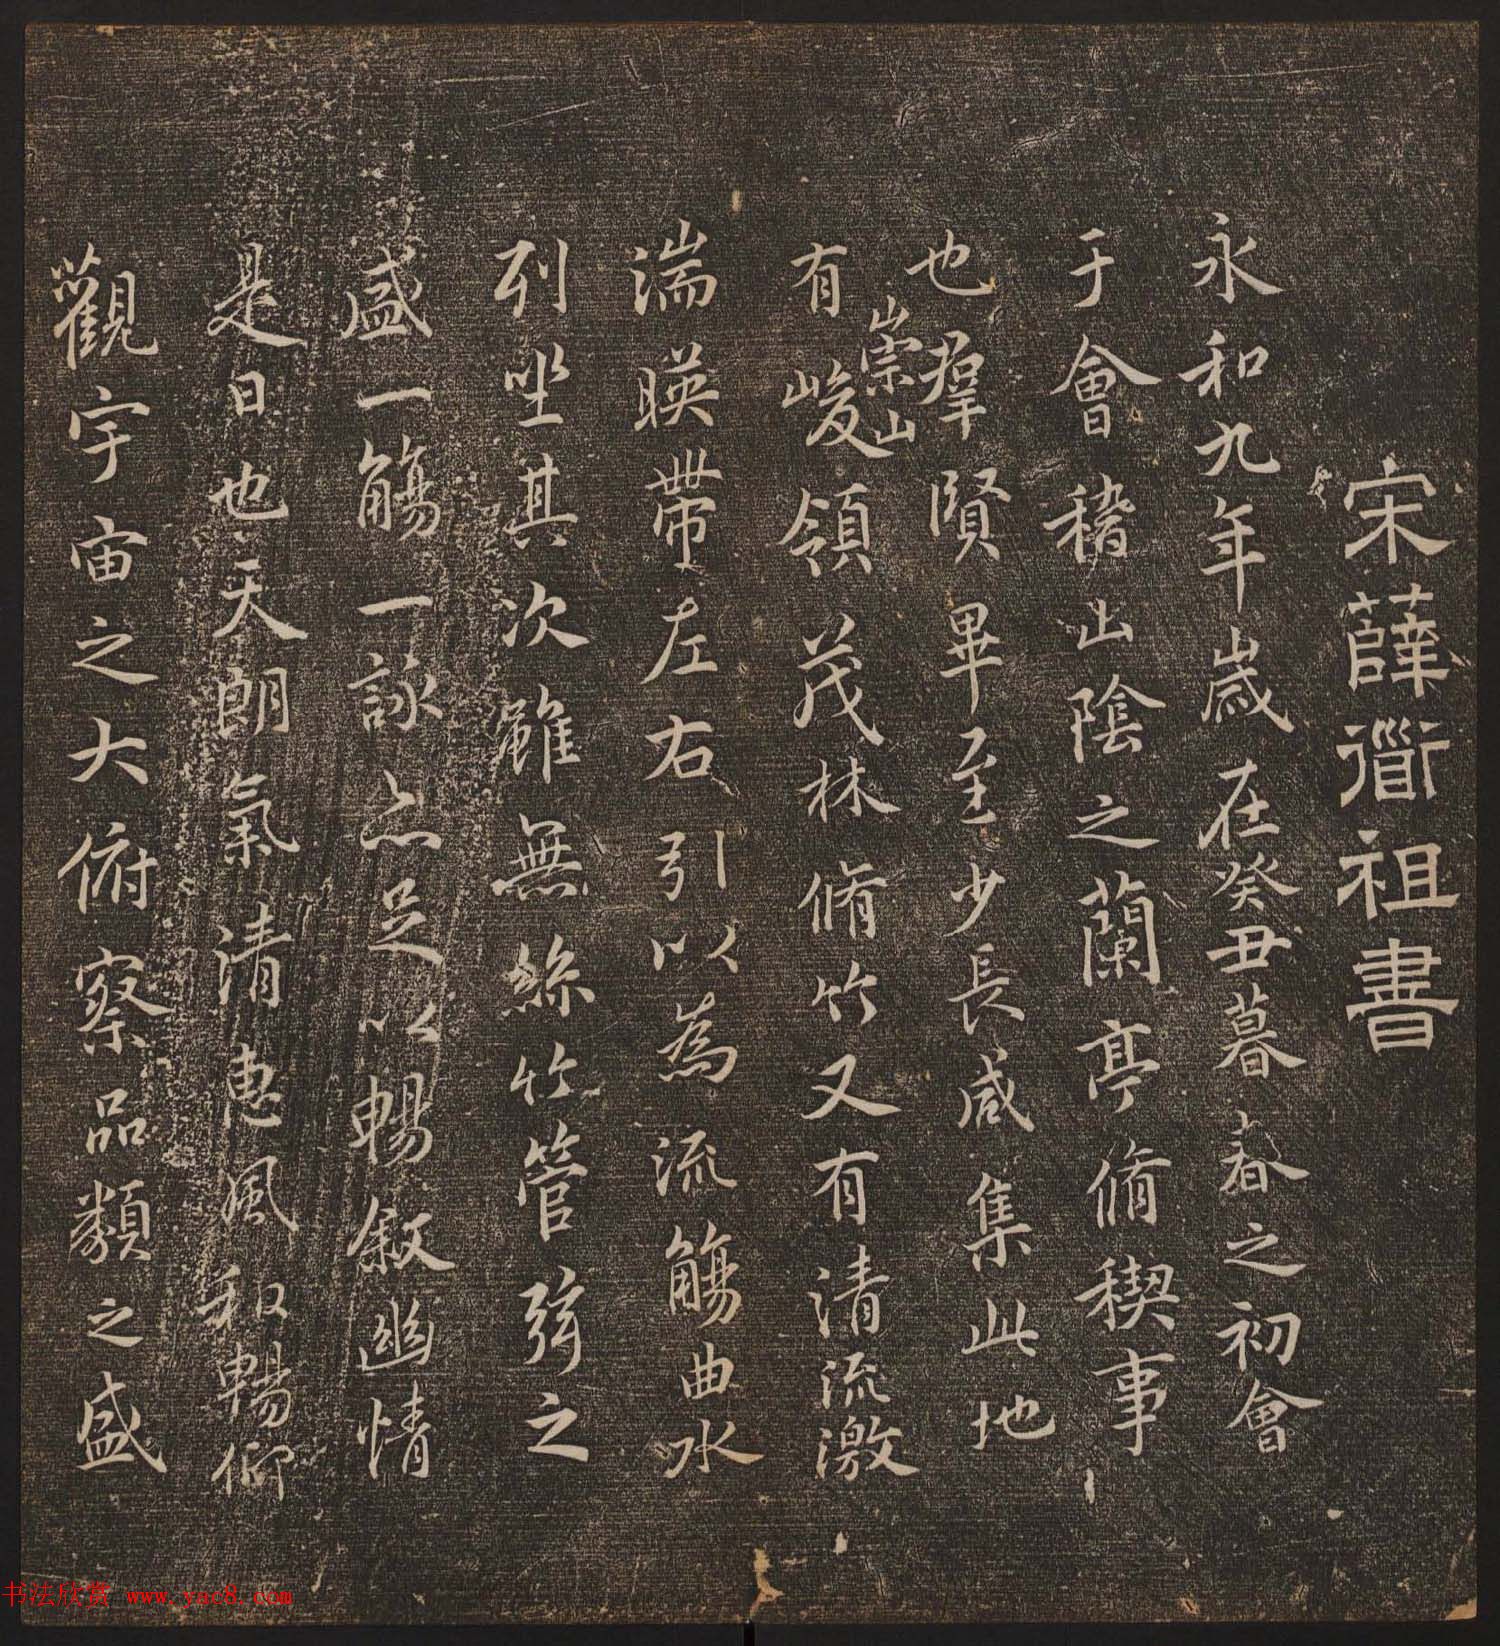 宋薛道祖書
永和九年歲在癸丑暮春之初會
于會稽山陰之蘭亭脩稧事
也羣賢畢至少長咸集此地
有崇山峻領茂林脩竹又有清流激
湍暎帶左右引以為流觴曲水
列坐其次雖無絲竹管弦之
盛一觴一詠亦足以暢敘幽情
是日也天朗氣清惠風和暢仰
觀宇宙之大俯察品類之盛
书法欣赏 www.yac8.com